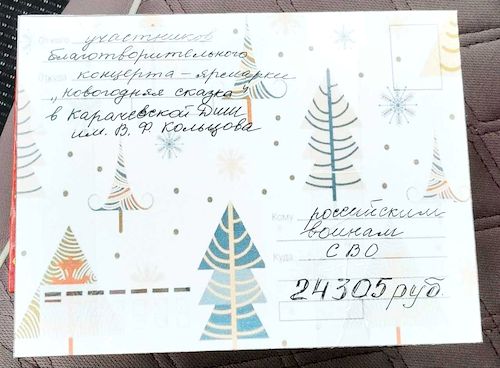 От кого участников
благотворительного
Откуда концерта – ярмарки
„Новогодняя сказка"
в Карачевской ДШИ
им. В. Ф. Кольцова
Кому российским
воинам
Куда СВО
24305 руб.